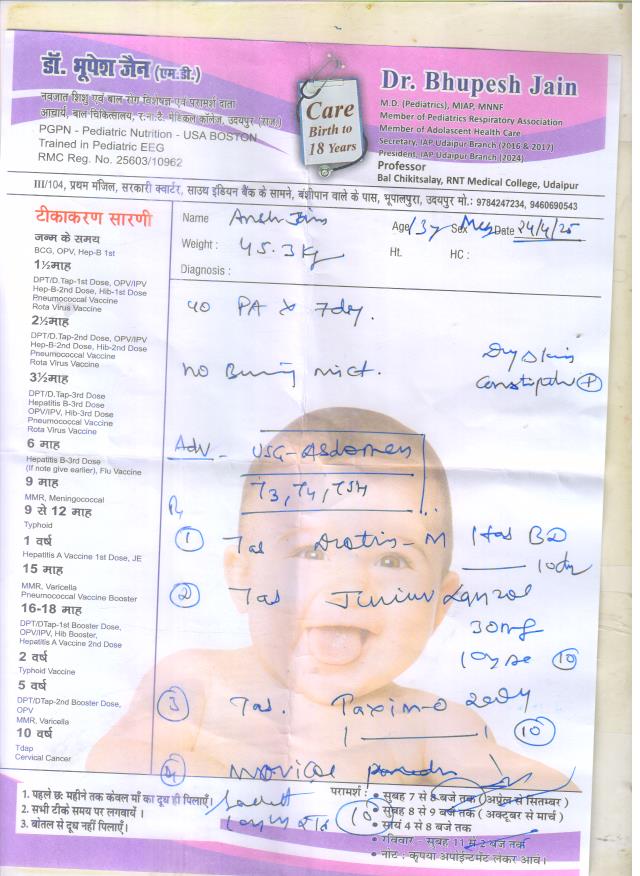 डॉ. भूपेश जैन (एम.डी.)
नवजात शिशु एवं बाल रोग विशेषज्ञ एवं परामर्श दाता
आचार्य, बाल चिकित्सालय, र.ना.टै. मेडिकल कॉलेज, उदयपुर (राज.)
PGPN - Pediatric Nutrition - USA BOSTON
Trained in Pediatric EEG
RMC Reg. No. 25603/10962
Care
Birth to
18 Years
Dr. Bhupesh Jain
M.D. (Pediatrics), MIAP, MNNF
Member of Pediatrics Respiratory Association
Member of Adolascent Health Care
Secretary, IAP Udaipur Branch (2016 & 2017)
President, IAP Udaipur Branch (2024)
Professor
Bal Chikitsalay, RNT Medical College, Udaipur
III/104, प्रथम मंजिल, सरकारी क्वार्टर, साउथ इंडियन बैंक के सामने, बंशीपान वाले के पास, भूपालपुरा, उदयपुर मो.: 9784247234, 9460690543
टीकाकरण सारणी
जन्म के समय
BCG, OPV, Hep-B 1st
1½माह
DPT/D.Tap-1st Dose, OPV/IPV
Hep-B-2nd Dose, Hib-1st Dose
Pneumococcal Vaccine
Rota Virus Vaccine
2½माह
DPT/D.Tap-2nd Dose, OPV/IPV
Hep-B-2nd Dose, Hib-2nd Dose
Pneumococcal Vaccine
Rota Virus Vaccine
3½माह
DPT/D.Tap-3rd Dose
Hepatitis B-3rd Dose
OPV/IPV, Hib-3rd Dose
Pneumococcal Vaccine
Rota Virus Vaccine
6 माह
Hepatitis B-3rd Dose
(If note give earlier), Flu Vaccine
9 माह
MMR, Meningococcal
9 से 12 माह
Typhoid
1 वर्ष
Hepatitis A Vaccine 1st Dose, JE
15 माह
MMR, Varicella
Pneumococcal Vaccine Booster
16-18 माह
DPT/DTap-1st Booster Dose,
OPV/IPV, Hib Booster,
Hepatitis A Vaccine 2nd Dose
2 वर्ष
Typhoid Vaccine
5 वर्ष
DPT/DTap-2nd Booster Dose,
OPV
MMR, Varicella
10 वर्ष
Tdap
Cervical Cancer
Name Ansh Jain Age 13y Sex Date 24/4/25
Weight : 45.3 kg Ht. HC :
Diagnosis :
PA x 7 day.
Dry Skin
no Burning mict.
Adv - USG - Abdomen
T3, T4, TSH
Rx
① Tab Drotin-M 1 tab BD
10 day
② Tab Junior Lanzol
30mg
⑩
③ Tab. Taxim-O 200
1 1 ⑩
④ Movicol
⑩
1. पहले छ: महीने तक केवल माँ का दूध ही पिलाएँ।
2. सभी टीके समय पर लगवायें ।
3. बोतल से दूध नहीं पिलाएँ।
परामर्श : • सुबह 7 से 8 बजे तक (अप्रेल से सितम्बर )
• सुबह 8 से 9 बजे तक ( अक्टूबर से मार्च )
• सायं 4 से 8 बजे तक
• रविवार - सुबह 11 से 2 बजे तक
• नोट : कृपया अपॉईन्टमेंट लेकर आवें।